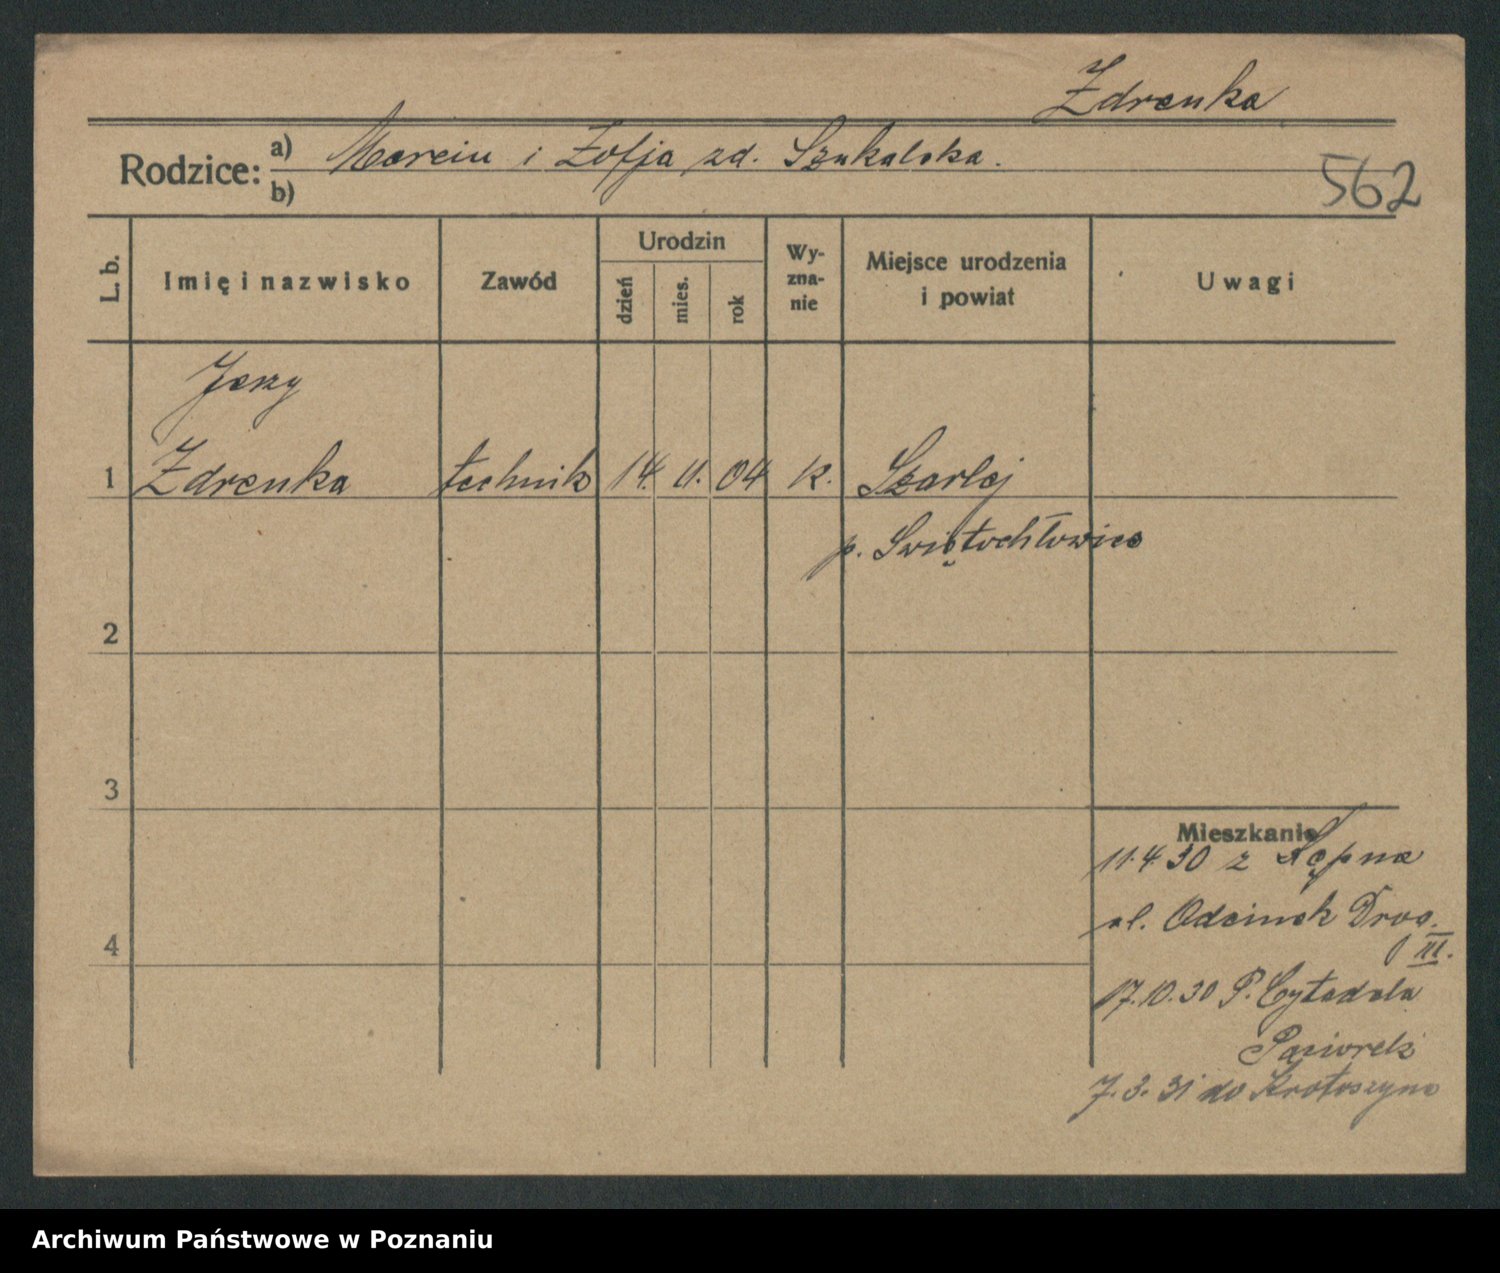 Zdrenka
Rodzice: a) Marcin i Zofja zd. Szukalska.
b)
562
L. b.
Imię i nazwisko
Zawód
Urodzin
dzień
mies.
rok
Wy-
zna-
nie
Miejsce urodzenia
i powiat
Uwagi
Jerzy
1 Zdrenka technik 14. 11. 04 k. Szarlej
p. Świętochłowice
2
3
Mieszkanie
11.4.30 z Kępna
ul. Odcinek Drog.
III.
4
17.10.30 P. Cytadela
7.3.31 do Krotoszyna
Archiwum Państwowe w Poznaniu